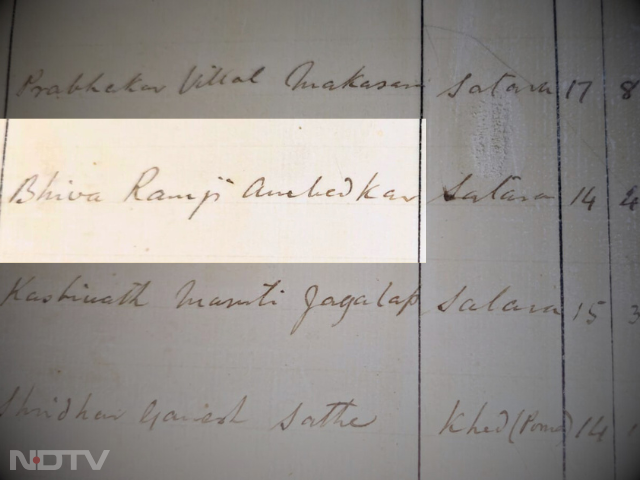 Prabhakar Vittal Makasare Satara 17 8
Bhiva Ramji Ambedkar Satara 14 4
Kashinath Maruti Jagatap Satara 15 3
Shridhar Ganesh Sathe Khed (Poona) 14 1
NDTV